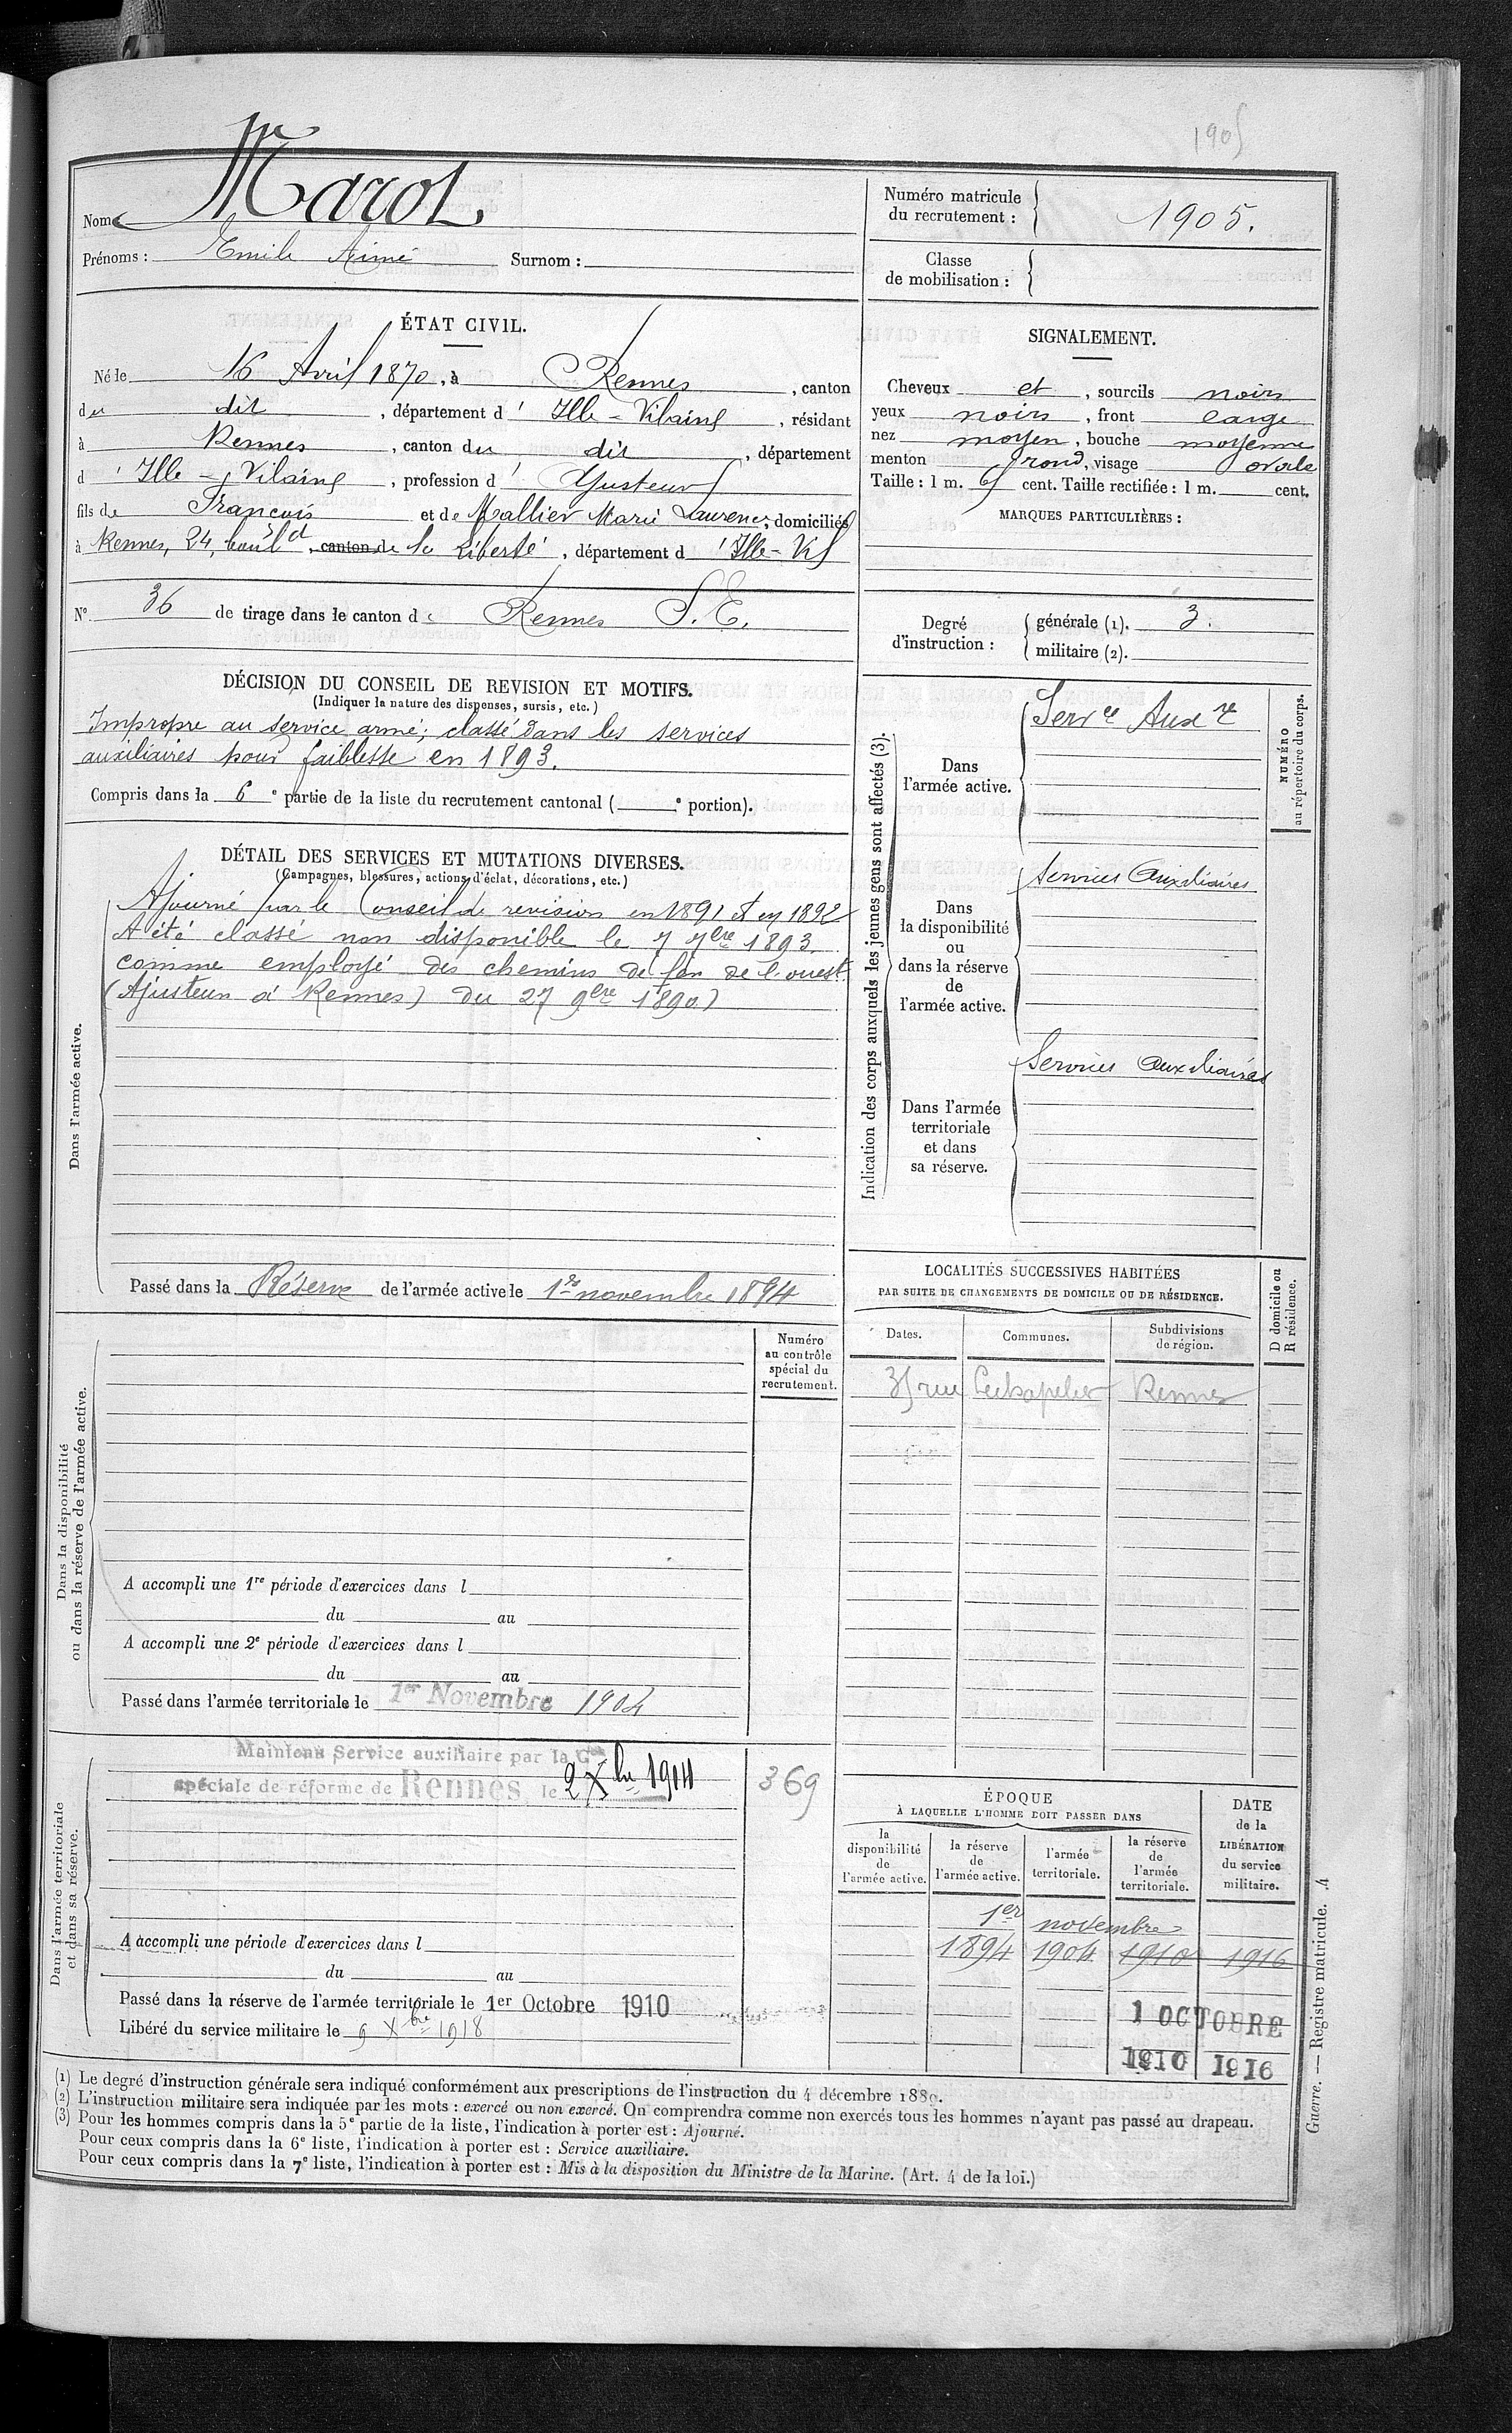 1905
Nom Marot
Prénoms : Emile Aimé Surnom :
Numéro matricule
du recrutement : 1905.
Classe
de mobilisation :
ÉTAT CIVIL.
Né le 16 Avril 1870, à Rennes, canton
du dit, département d'Ille-Vilaine, résidant
à Rennes, canton du dit, département
d'Ille-Vilaine, profession d'Ajusteur
fils de François et de Mallier Marie Laurence, domiciliés
à Rennes, 24, boul^d canton de la Liberté, département d'Ille-V^e
N° 36 de tirage dans le canton de Rennes S. E.
SIGNALEMENT.
Cheveux et, sourcils noirs
yeux noirs, front large
nez moyen, bouche moyenne
menton rond, visage ovale
Taille : 1 m. cent. Taille rectifiée : 1 m. cent.
MARQUES PARTICULIÈRES :
Degré
d'instruction :
générale (1). 3.
militaire (2).
DÉCISION DU CONSEIL DE REVISION ET MOTIFS.
(Indiquer la nature des dispenses, sursis, etc.)
Impropre au service armé; classé dans les services
auxiliaires pour faiblesse en 1893.
Compris dans la 6e partie de la liste du recrutement cantonal ( e portion).
DÉTAIL DES SERVICES ET MUTATIONS DIVERSES.
(Campagnes, blessures, actions d'éclat, décorations, etc.)
Dans l'armée active.
Ajourné par le Conseil de revision en 1891 et en 1892
A été classé non disponible le 7 7bre 1893
comme employé des chemins de fer de l'ouest
(Ajusteur à Rennes) du 27 9bre 1890)
Passé dans la Réserve de l'armée active le 1er novembre 1894
Indication des corps auxquels les jeunes gens sont affectés (3).
Dans
l'armée active.
Serv^ce Aux^re
NUMÉRO
au répertoire du corps.
Dans
la disponibilité
ou
dans la réserve
de
l'armée active.
Services Auxiliaires
Dans l'armée
territoriale
et dans
sa réserve.
Services Auxiliaires
LOCALITÉS SUCCESSIVES HABITÉES
PAR SUITE DE CHANGEMENTS DE DOMICILE OU DE RÉSIDENCE.
Dates.
Communes.
Subdivisions
de région.
D domicile ou
R résidence.
rue Rennes
Dans la disponibilité
ou dans la réserve de l'armée active.
Numéro
au contrôle
spécial du
recrutement.
A accompli une 1re période d'exercices dans l
du au
A accompli une 2e période d'exercices dans l
du au
Passé dans l'armée territoriale le 1er Novembre 1904
Dans l'armée territoriale
et dans sa réserve.
Maintenu Service auxiliaire par la C^on
spéciale de réforme de Rennes le 2 Xbre 1914
369
A accompli une période d'exercices dans l
du au
Passé dans la réserve de l'armée territoriale le 1er Octobre 1910
Libéré du service militaire le 9 Xbre 1918
ÉPOQUE
À LAQUELLE L'HOMME DOIT PASSER DANS
la
disponibilité
de
l'armée active.
la réserve
de
l'armée active.
l'armée
territoriale.
la réserve
de
l'armée
territoriale.
DATE
de la
LIBÉRATION
du service
militaire.
1er novembre
1894 1904 1910 1916
1 OCTOBRE
1910 1916
(1) Le degré d'instruction générale sera indiqué conformément aux prescriptions de l'instruction du 4 décembre 1889.
(2) L'instruction militaire sera indiquée par les mots : exercé ou non exercé. On comprendra comme non exercés tous les hommes n'ayant pas passé au drapeau.
(3) Pour les hommes compris dans la 5e partie de la liste, l'indication à porter est : Ajourné.
Pour ceux compris dans la 6e liste, l'indication à porter est : Service auxiliaire.
Pour ceux compris dans la 7e liste, l'indication à porter est : Mis à la disposition du Ministre de la Marine. (Art. 4 de la loi.)
Guerre. — Registre matricule. A